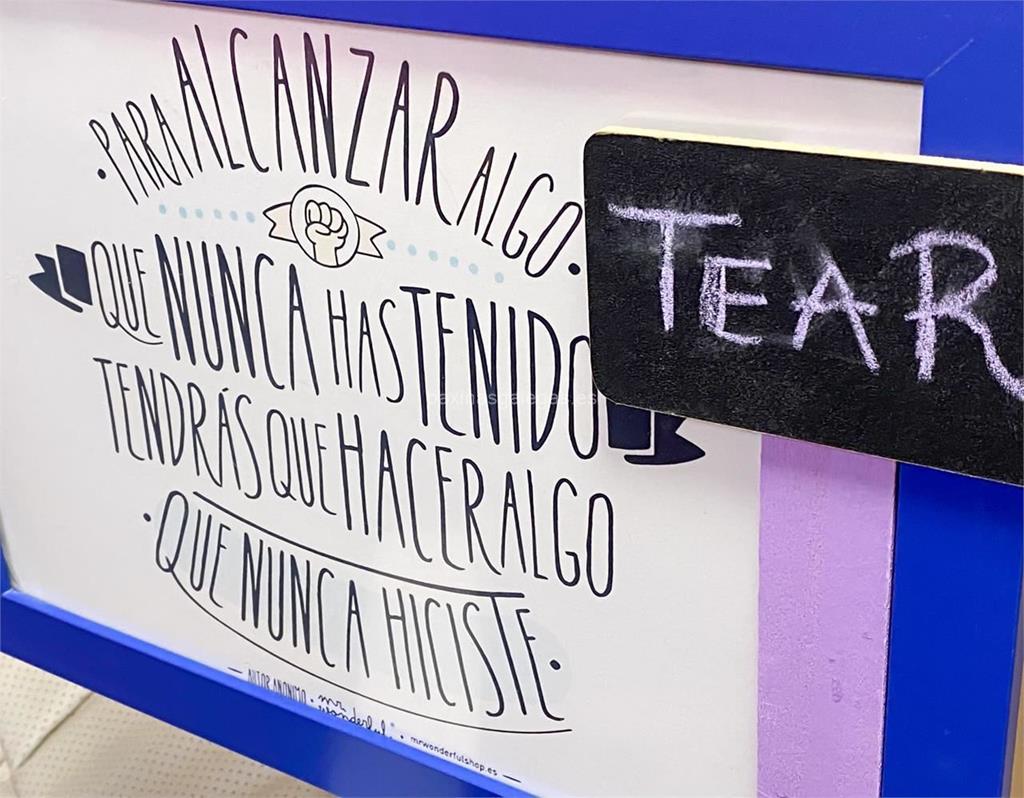 PARA ALCANZAR ALGO
QUE NUNCA HAS TENIDO
TENDRÁS QUE HACER ALGO
QUE NUNCA HICISTE
AUTOR ANÓNIMO · mr wonderful*
mrwonderfulshop.es
TEAR